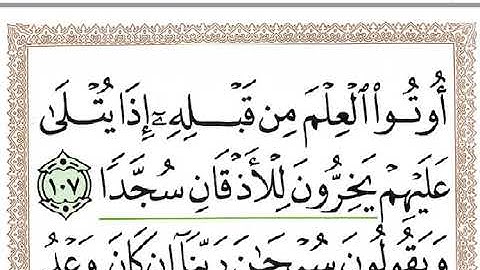 أُوتُوا۟ ٱلْعِلْمَ مِن قَبْلِهِۦٓ إِذَا يُتْلَىٰ
عَلَيْهِمْ يَخِرُّونَ لِلْأَذْقَانِ سُجَّدًا ١٠٧
وَيَقُولُونَ سُبْحَٰنَ رَبِّنَآ إِن كَانَ وَعْدُ